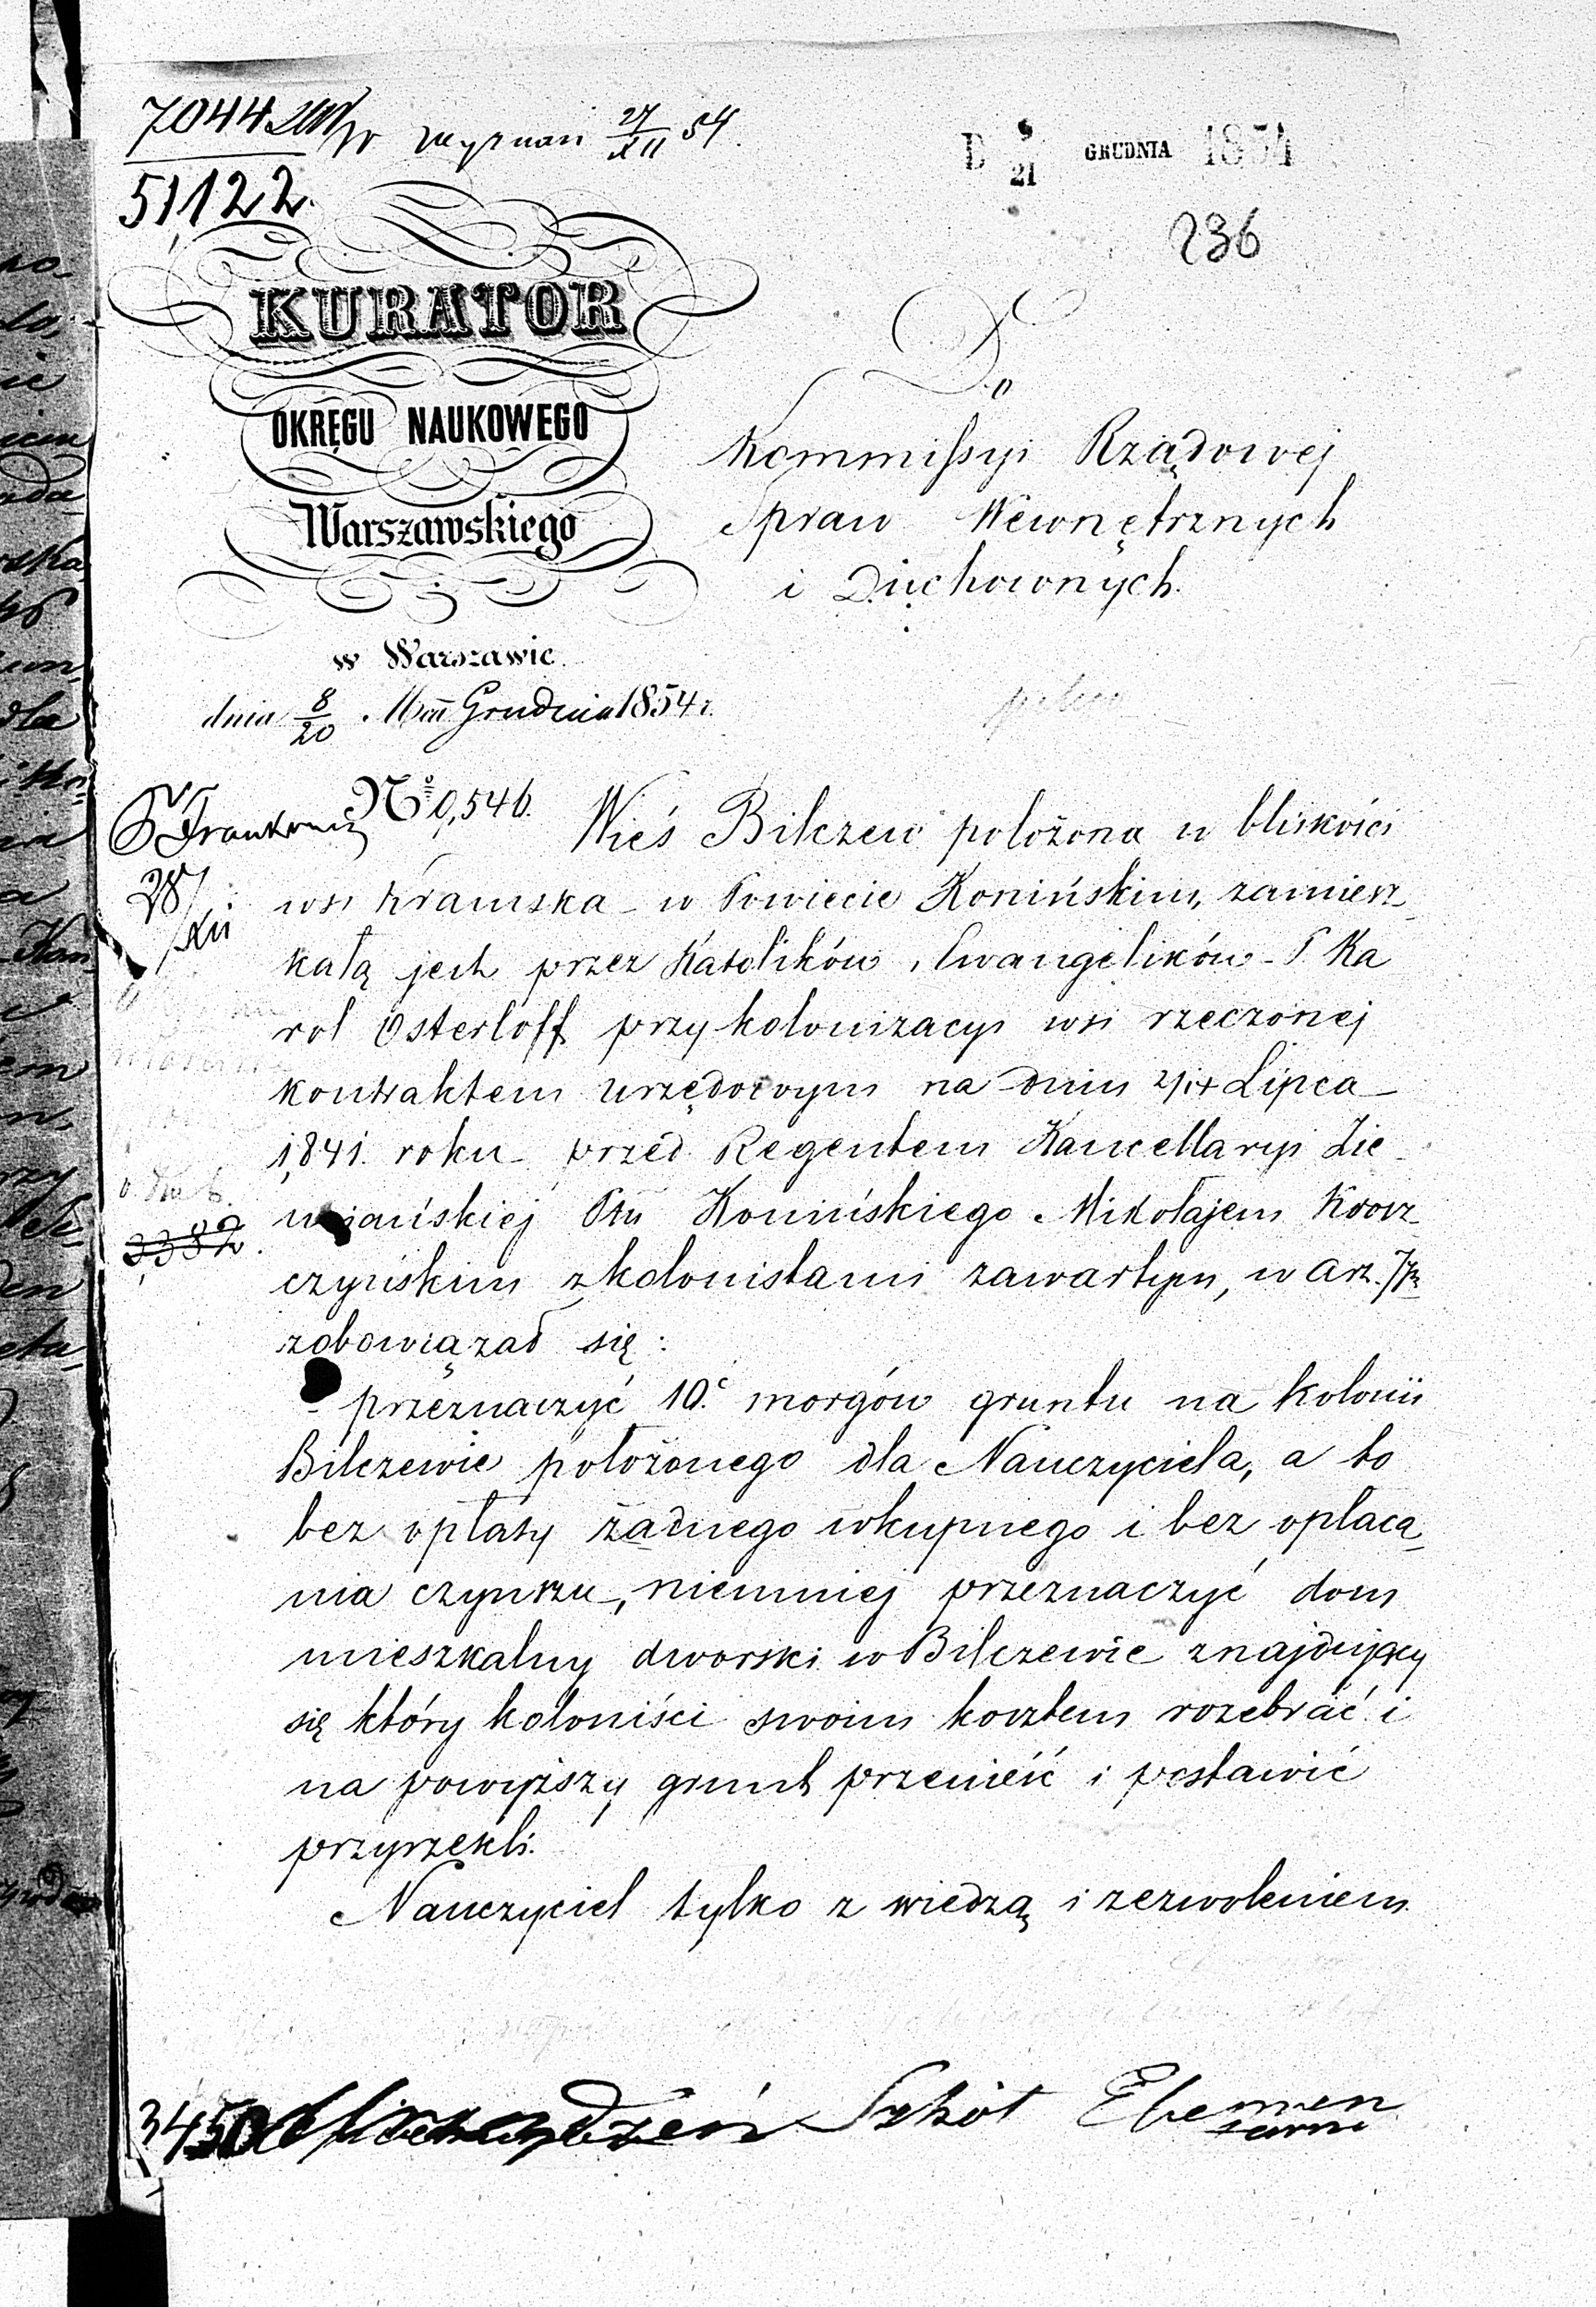 7044
wyznań 27/XII 54.
51,122.
D 9/21 GRUDNIA 1854
236
KURATOR
OKRĘGU NAUKOWEGO
Warszawskiego
w Warszawie.
dnia 8/20 Mca Grudnia 1854 r.
Do
Kommissyi Rządowej
Spraw Wewnętrznych
i Duchownych.
28/XII
Wieś Bilczew położona w bliskości
wsi Kramska w Powiecie Konińskim, zamiesz-
kałą jest przez Katolików, Ewangelików. P. Ka
rol Osterloff przy kolonizacyi wsi rzeczonej
kontraktem urzędowym na dniu Lipca
1841. roku przed Regentem Kancellaryi Zie-
miańskiej Ptu Konińskiego Mikołajem
czyńskim z kolonistami zawartym, w art. 7m
zobowiązał się:
przeznaczyć 10. morgów gruntu na kolonii
Bilczewie położonego dla Nauczyciela, a to
bez opłaty żadnego wkupnego i bez opłaca-
nia czynszu, niemniej przeznaczyć dom
mieszkalny dworski w Bilczewie znajdujący
się który koloniści swoim kosztem rozebrać i
na powyższy grunt przenieść i postawić
przyrzekli.
Nauczyciel tylko z wiedzą i zezwoleniem
3382.
Szkół Elemen
tarne